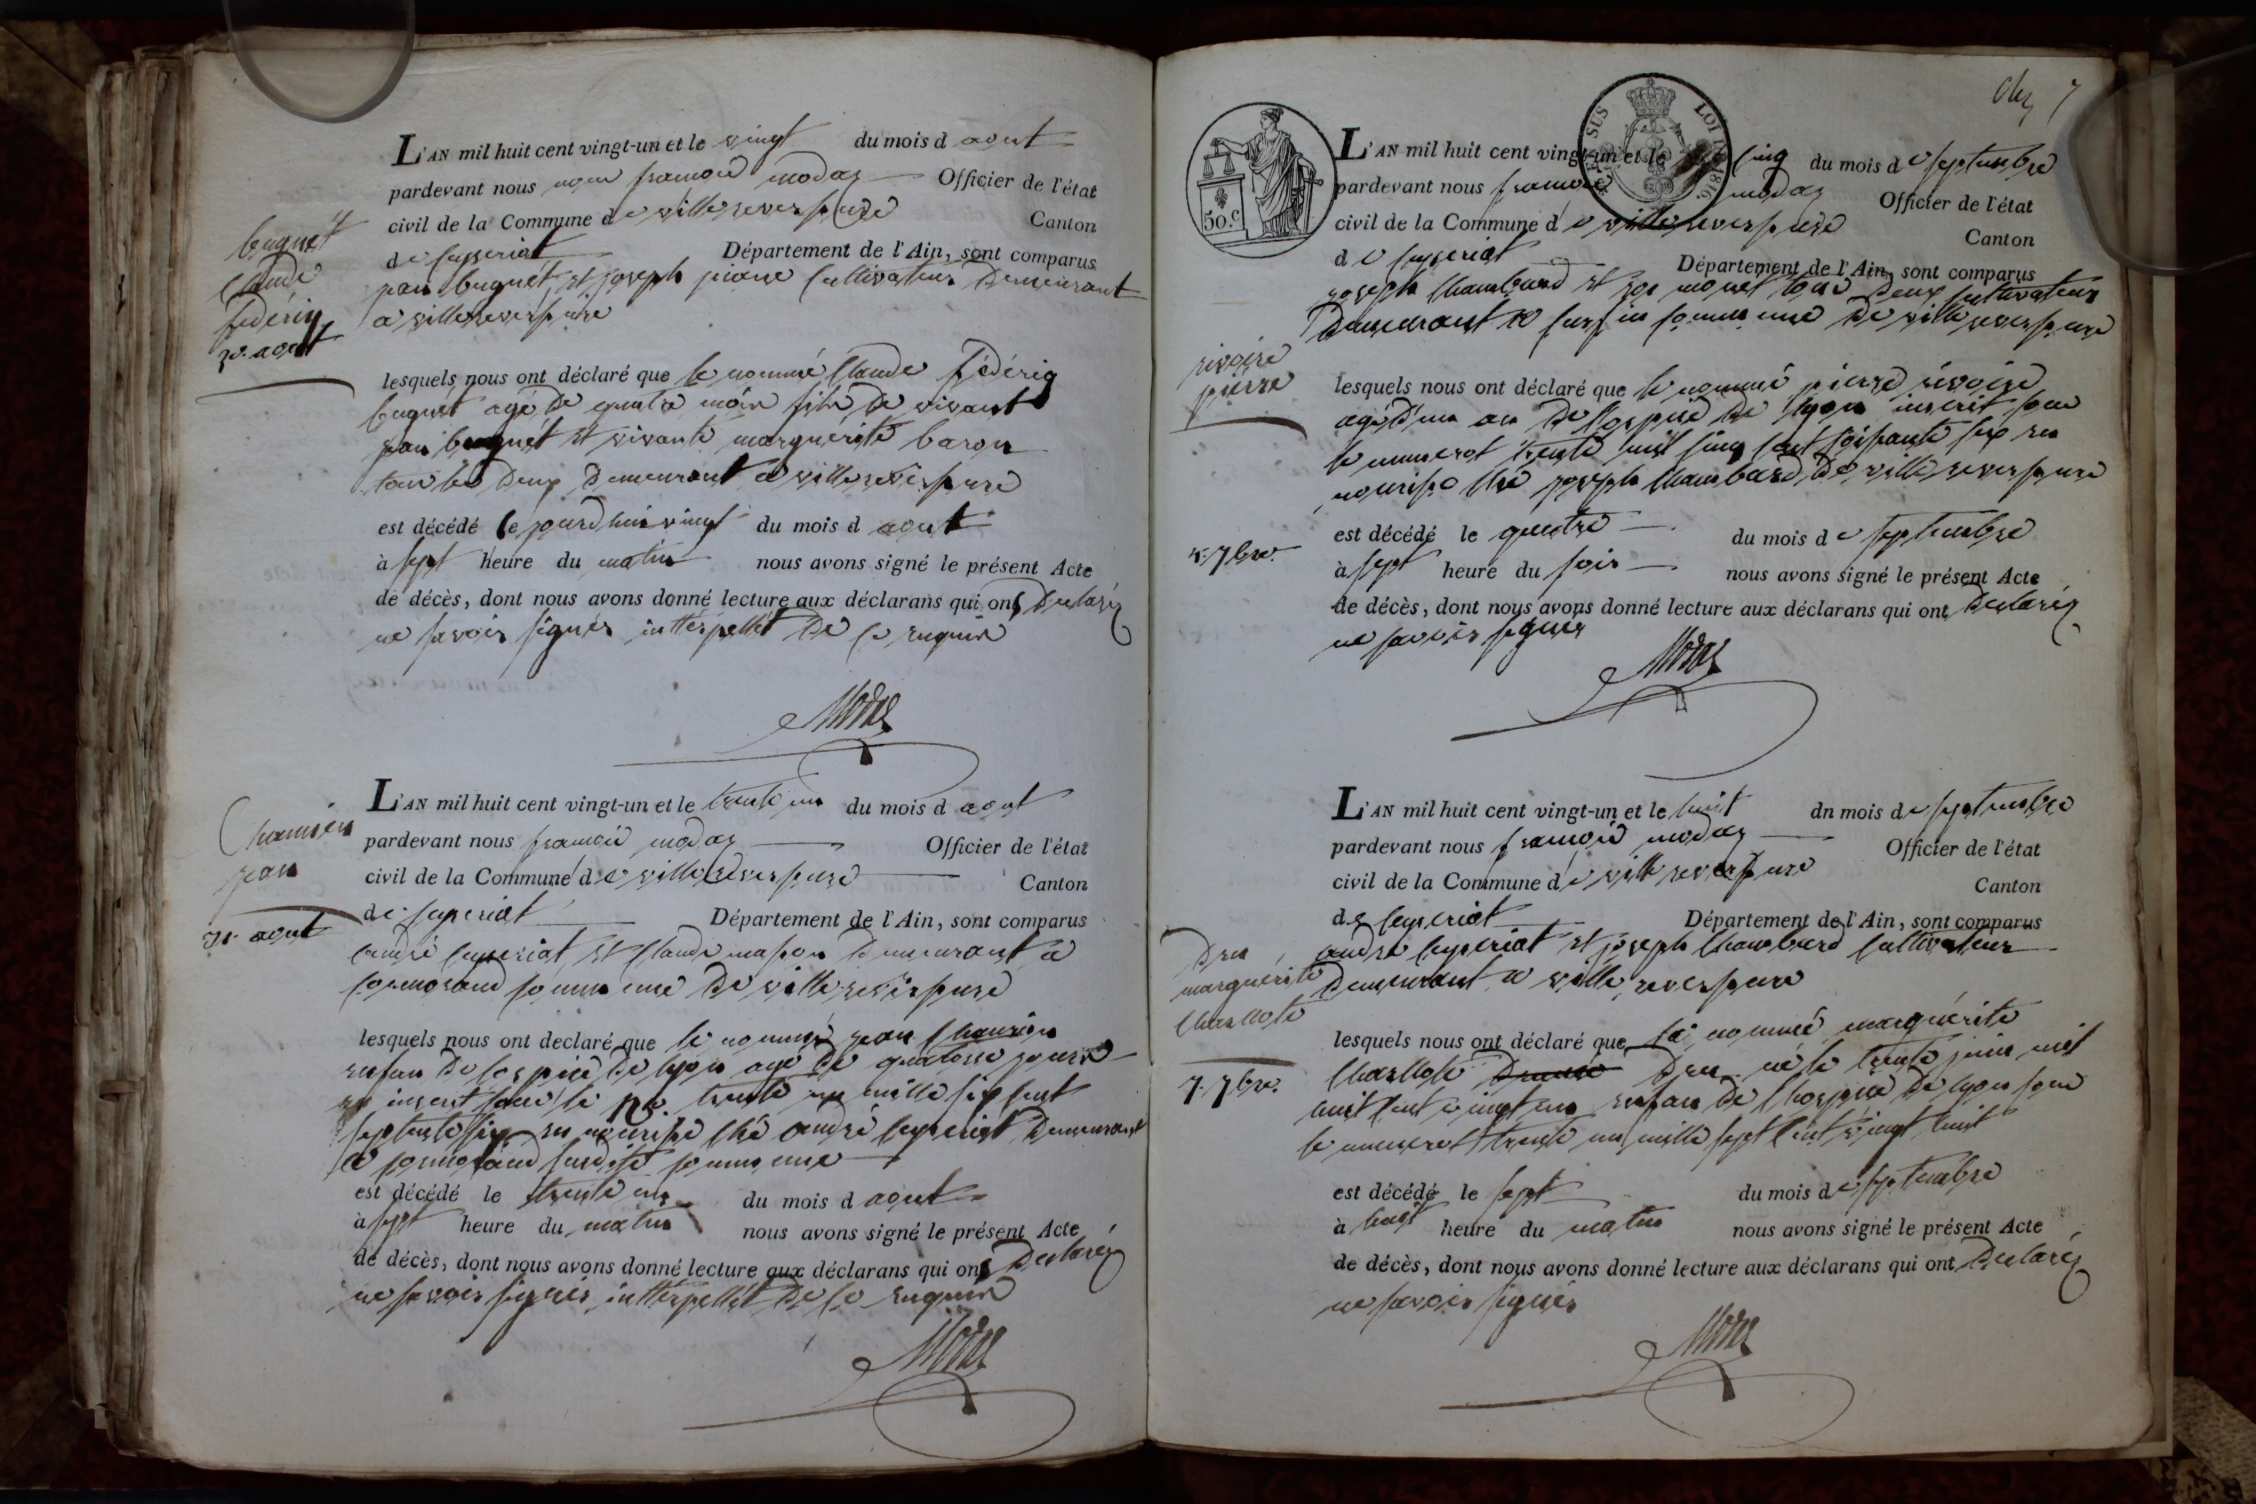 buguét
claude
fédériq
20. aout
L'AN mil huit cent vingt-un et le vingt du mois d aout
pardevant nous nous francoi modas Officier de l'état
civil de la Commune d e villereversure Canton
de ceyseriat Département de l'Ain, sont comparus
jean buguét et joseph cultivateur demeurant
a villereversure
lesquels nous ont déclaré que le nommé claude fédériq
buguét agé de quatre moi fils de vivant
jean buguét et vivante marguérite baron
tous les deux demeurant a villereversure
est décédé le jourdhui vingt du mois d aout
à sept heure du matin nous avons signé le présent Acte
de décès, dont nous avons donné lecture aux déclarans qui ont declaréz
ne savoir signér intterpellét de ce
Modas
Chanrion
jean
31. aout
L'AN mil huit cent vingt-un et le trente un du mois d aout
pardevant nous francoi modas Officier de l'état
civil de la Commune d e villereversure Canton
de ceyseriat Département de l'Ain, sont comparus
andré ceyseriat et claude mason demeurant a
cormorand commune de villereversure
lesquels nous ont declaré que le nommé jean
enfan de lospice de lyon agé de quatorse jours
et inscrit sous le No. trente un mille six cent
septante six en nourisse ché andré ceyseriat demeurant
a cormorand susdite commune
est décédé le trente un du mois d aout
à sept heure du matin nous avons signé le présent Acte
de décès, dont nous avons donné lecture aux déclarans qui ont declaréz
ne savoir signér intterpellét de ce
Modas
7
SUS LOI 1816
50.c
rivoire
pierre
4. 7bre.
L'AN mil huit cent vingt-un et le cinq du mois d e septembre
pardevant nous francoi modas Officier de l'état
civil de la Commune d e villereversure Canton
d e ceyseriat Département de l'Ain, sont comparus
joseph chambard et monet tous deux cultivateur
demeurant a commune de villereversure
lesquels nous ont déclaré que le nommé pierre rivoire
agé d'un an de lospice de lyon inscrit sous
le numerot trente huit cinq cent soisante six en
nourisse ché joseph chambard de villereversure
est décédé le quatre du mois d e septembre
à sept heure du soir nous avons signé le présent Acte
de décès, dont nous avons donné lecture aux déclarans qui ont declaréz
ne savoir signér
Modas
Dru
marguérite
charllote
7. 7bre.
L'AN mil huit cent vingt-un et le huit dn mois d e septembre
pardevant nous francoi modas Officier de l'état
civil de la Commune d e villereversure Canton
de ceyseriat Département de l'Ain, sont comparus
andré ceyseriat et joseph chambard cultivateur
demeurant a villereversure
lesquels nous ont déclaré que la nommé marguérite
charllote dru né le trente juin mil
huit cent vingt un enfan de lhospice de lyon sous
le numerot trente un mille sept cent vingt huit
est décédé le sept du mois d e septembre
à heure du matin nous avons signé le présent Acte
de décès, dont nous avons donné lecture aux déclarans qui ont declaréz
ne savoir signér
Modas